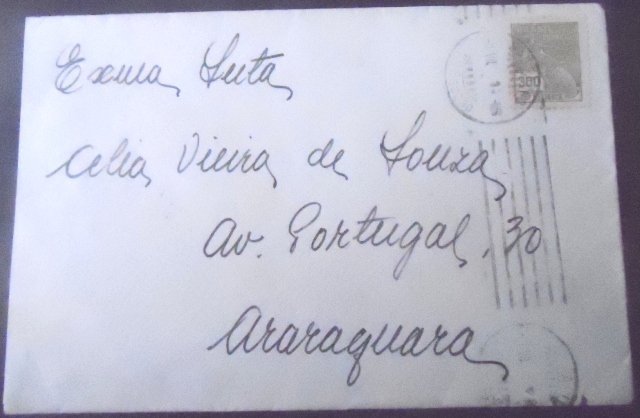 Exma Snta
Celia Vieira de Souza
Av. Portugal, 30
Araraquara
300